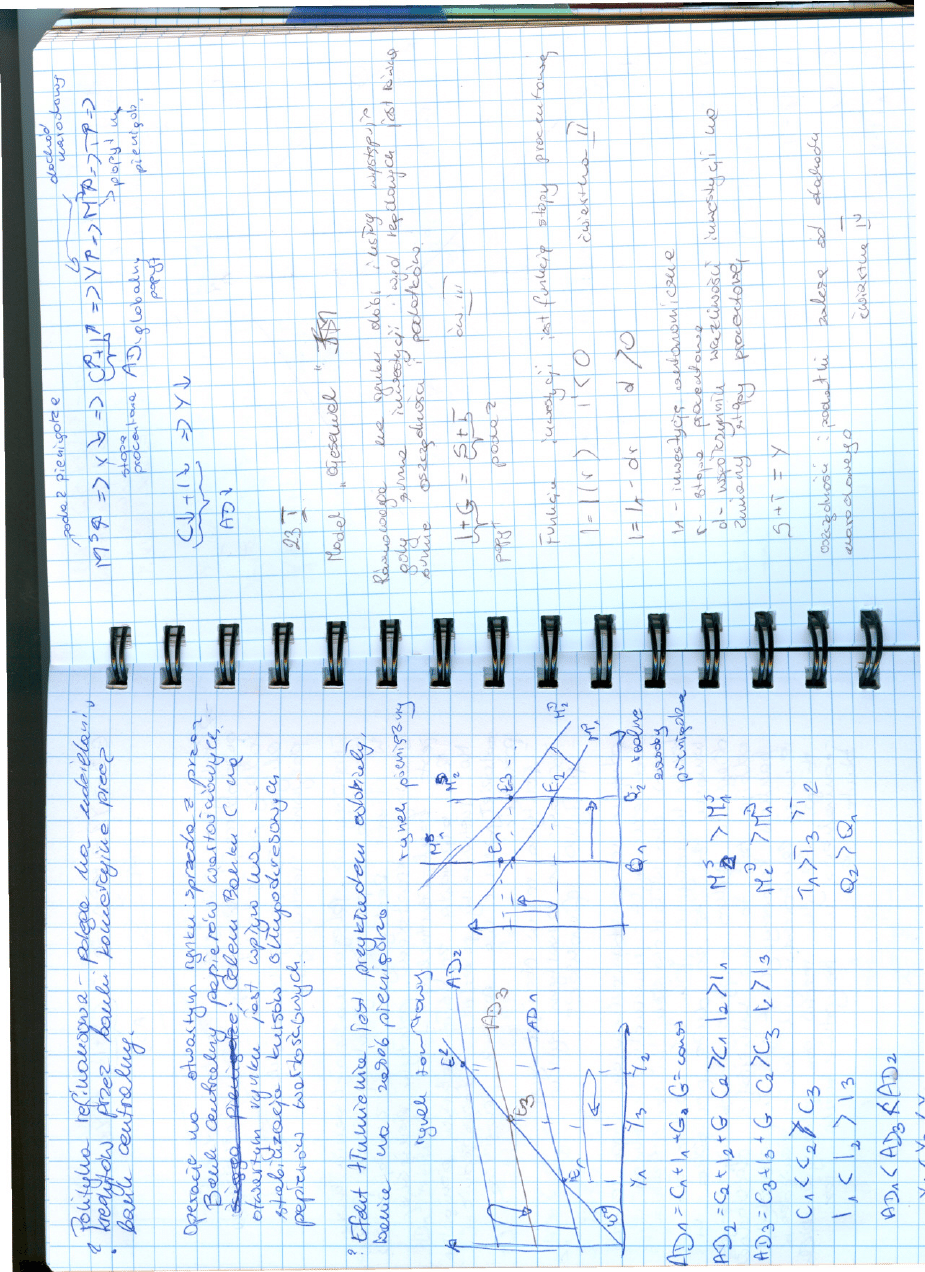 ? Polityka refinansowa - polega na udzielaniu
kredytów przez banki komercyjne przez
bank centralny.
Operacje na otwartym rynku sprzedaż przez
Bank centralny papierów wartościowych.
Celem Banku C na
otwartym rynku jest wpływ na
stabilizację kursów długookresowych
papierów wartościowych.
? Efekt tłumienia jest przykładem oddziały
wanie na zasób pieniądza.
rynek towarowy
rynek pieniężny
AD2
AD3
AD1
E2
E3
E1
45°
Y1 Y3 Y2
M1S M2S
E1 E3
E2
M2D
M1D
Q1 Q2 realne
zasoby
pieniądza
AD1 = C1 + I1 + G G = const
AD2 = C2 + I2 + G C2 > C1 I2 > I1
AD3 = C3 + I3 + G C2 > C3 I2 > I3
C1 < C2 > C3
I1 < I2 > I3
AD1 < AD3 < AD2
M2S > M1S
M2D > M1D
Q2 > Q1
podaż pieniądza
dochód
narodowy
MS↑ => r↓ => C↑+I↑ => Y↑ => MD↑ => r↑ =>
stopa
procentowa
AD globalny
popyt
popyt na
pieniądz.
C↓ + I↓ => Y↓
AD↓
23 I
Model
Równowaga na rynku dóbr i usług występuje
gdy suma inwestycji i wyd rządowych jest równa
sumie oszczędności i podatków.
I + G = S + T ćw. III
popyt podaż
Funkcja inwestycji jest funkcją stopy procentowej
I = I(r) I' < 0 ćwiartka II
I = In - dr d > 0
In - inwestycje autonomiczne
r - stopa procentowa
d - współczynnik wrażliwości inwestycji na
zmiany stopy procentowej
S + T = Y
oszczędności i podatki zależą od dochodu
narodowego ćwiartka IV